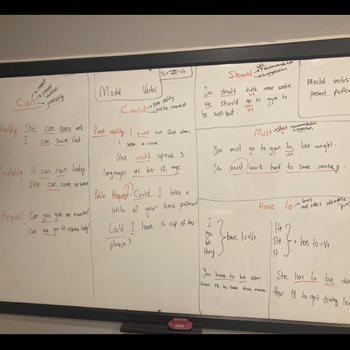 Can
request
ability
possibility
Ability: She can dance well.
I can swim fast.
Possibility: It can rain today.
She can come
Request: Can you give me
Can we go to cinema today?
Modal Verbs
Could
past ability
polite request
Past ability: I could run fast when
I was a child
She could speak 3
languages at her 12 age
Polite Request: Could I take a
little of your time professor?
Could I have a cup of tea
please?
Should
recommendation
suggestion
You should drink more water
We should go to gym to
be well-built.
Must
You must go to gym to lose weight.
You must work hard to save money.
Have to
rules
I
you
we
they
have to + V1
He
She
It
+ has to + V1
You have to be older
than 18 to see that movie
She has to be
than 18 to get driving
Modal verbs
present, perfect